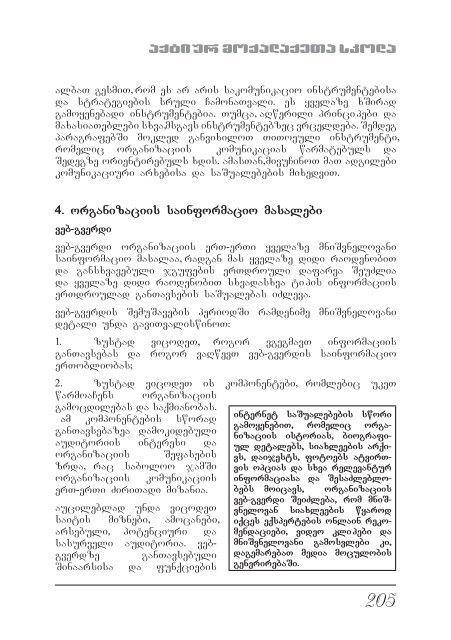 აქტიურ მოქალაქეთა სკოლა
ალბათ გესმით, რომ ეს არ არის საკომუნიკაციო ინსტრუმენტებისა
და სტრატეგიების სრული ჩამონათვალი. ეს ყველაზე ხშირად
გამოყენებადი ინსტრუმენტებია. თუმცა, აღწერილი პრინციპები და
მახასიათებლები სხვა მსგავს ინსტრუმენტებზეც ვრცელდება. შემდეგ
პარაგრაფებში მოკლედ განვიხილოთ თითოეული ინსტრუმენტი,
რომელიც ორგანიზაციის კომუნიკაციას წარმატებულს და
შედეგზე ორიენტირებულს ხდის. ამასთან, მივუჩინოთ მათ ადგილები
კომუნიკაციური არხებისა და საშუალებების მიხედვით.
4. ორგანიზაციის საინფორმაციო მასალები
ვებ-გვერდი
ვებ-გვერდი ორგანიზაციის ერთ-ერთი ყველაზე მნიშვნელოვანი
საინფორმაციო მასალაა, რადგან მას ყველაზე დიდი რაოდენობით
და განსხვავებული ჯგუფების ერთდროული დაფარვა შეუძლია
და ყველაზე დიდი რაოდენობით სხვადასხვა ტიპის ინფორმაციის
ერთდროულად განთავსების საშუალებას იძლევა.
ვებ-გვერდის შემუშავების პერიოდში რამდენიმე მნიშვნელოვანი
დეტალი უნდა გავითვალისწინოთ:
1. ზუსტად ვიცოდეთ, როგორ ვგეგმავთ ინფორმაციის
განთავსებას და როგორ ვაღწევთ ვებ-გვერდის საინფორმაციო
ერთობლიობას;
2. ზუსტად ვიცოდეთ ის კომპონენტები, რომლებიც უკეთ
წარმოაჩენს ორგანიზაციის
გამოცდილებას და საქმიანობას.
ამ კომპონენტების სწორად
განთავსებაზეა დამოკიდებული
აუდიტორიის ინტერესი და
ორგანიზაციის შეფასების
ზრდა, რაც საბოლოო ჯამში
ორგანიზაციის კომუნიკაციის
ერთ-ერთი ძირითადი მიზანია.
აუცილებლად უნდა ვიცოდეთ
საიტის მიზნები, ამოცანები,
არსებული, პოტენციური და
სასურველი აუდიტორია. ვებ-
გვერდზე განთავსებული
შინაარსისა და ფუნქციების
ინტერნეტ საშუალებების სწორი
გამოყენებით, რომელიც ორგა-
ნიზაციის ისტორიას, ბიოგრაფი-
ულ დეტალებს, სიახლეების არქი-
ვს, დაიჯესტს, ფოტოებს ატვირთ-
ვის ოპციას და სხვა რელევანტურ
ინფორმაციასა და შესაძლებლო-
ბებს მოიცავს, ორგანიზაციის
ვებ-გვერდი შეიძლება, რომ მნიშ-
ვნელოვან სიახლეების წყაროდ
იქცეს ექსპერტების ონლაინ რეკო-
მენდაციები, ვიდეო კლიპები და
მნიშვნელოვანი გამოსვლები კი,
დაგემარებათ მედია მოცულობის
გენერირებაში.
205